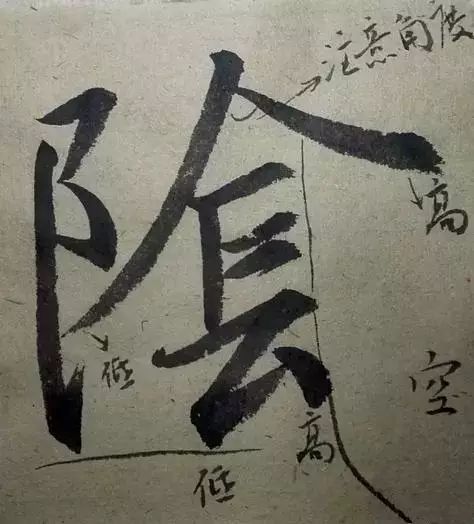 注意角度
陰
高
低
空
高
低